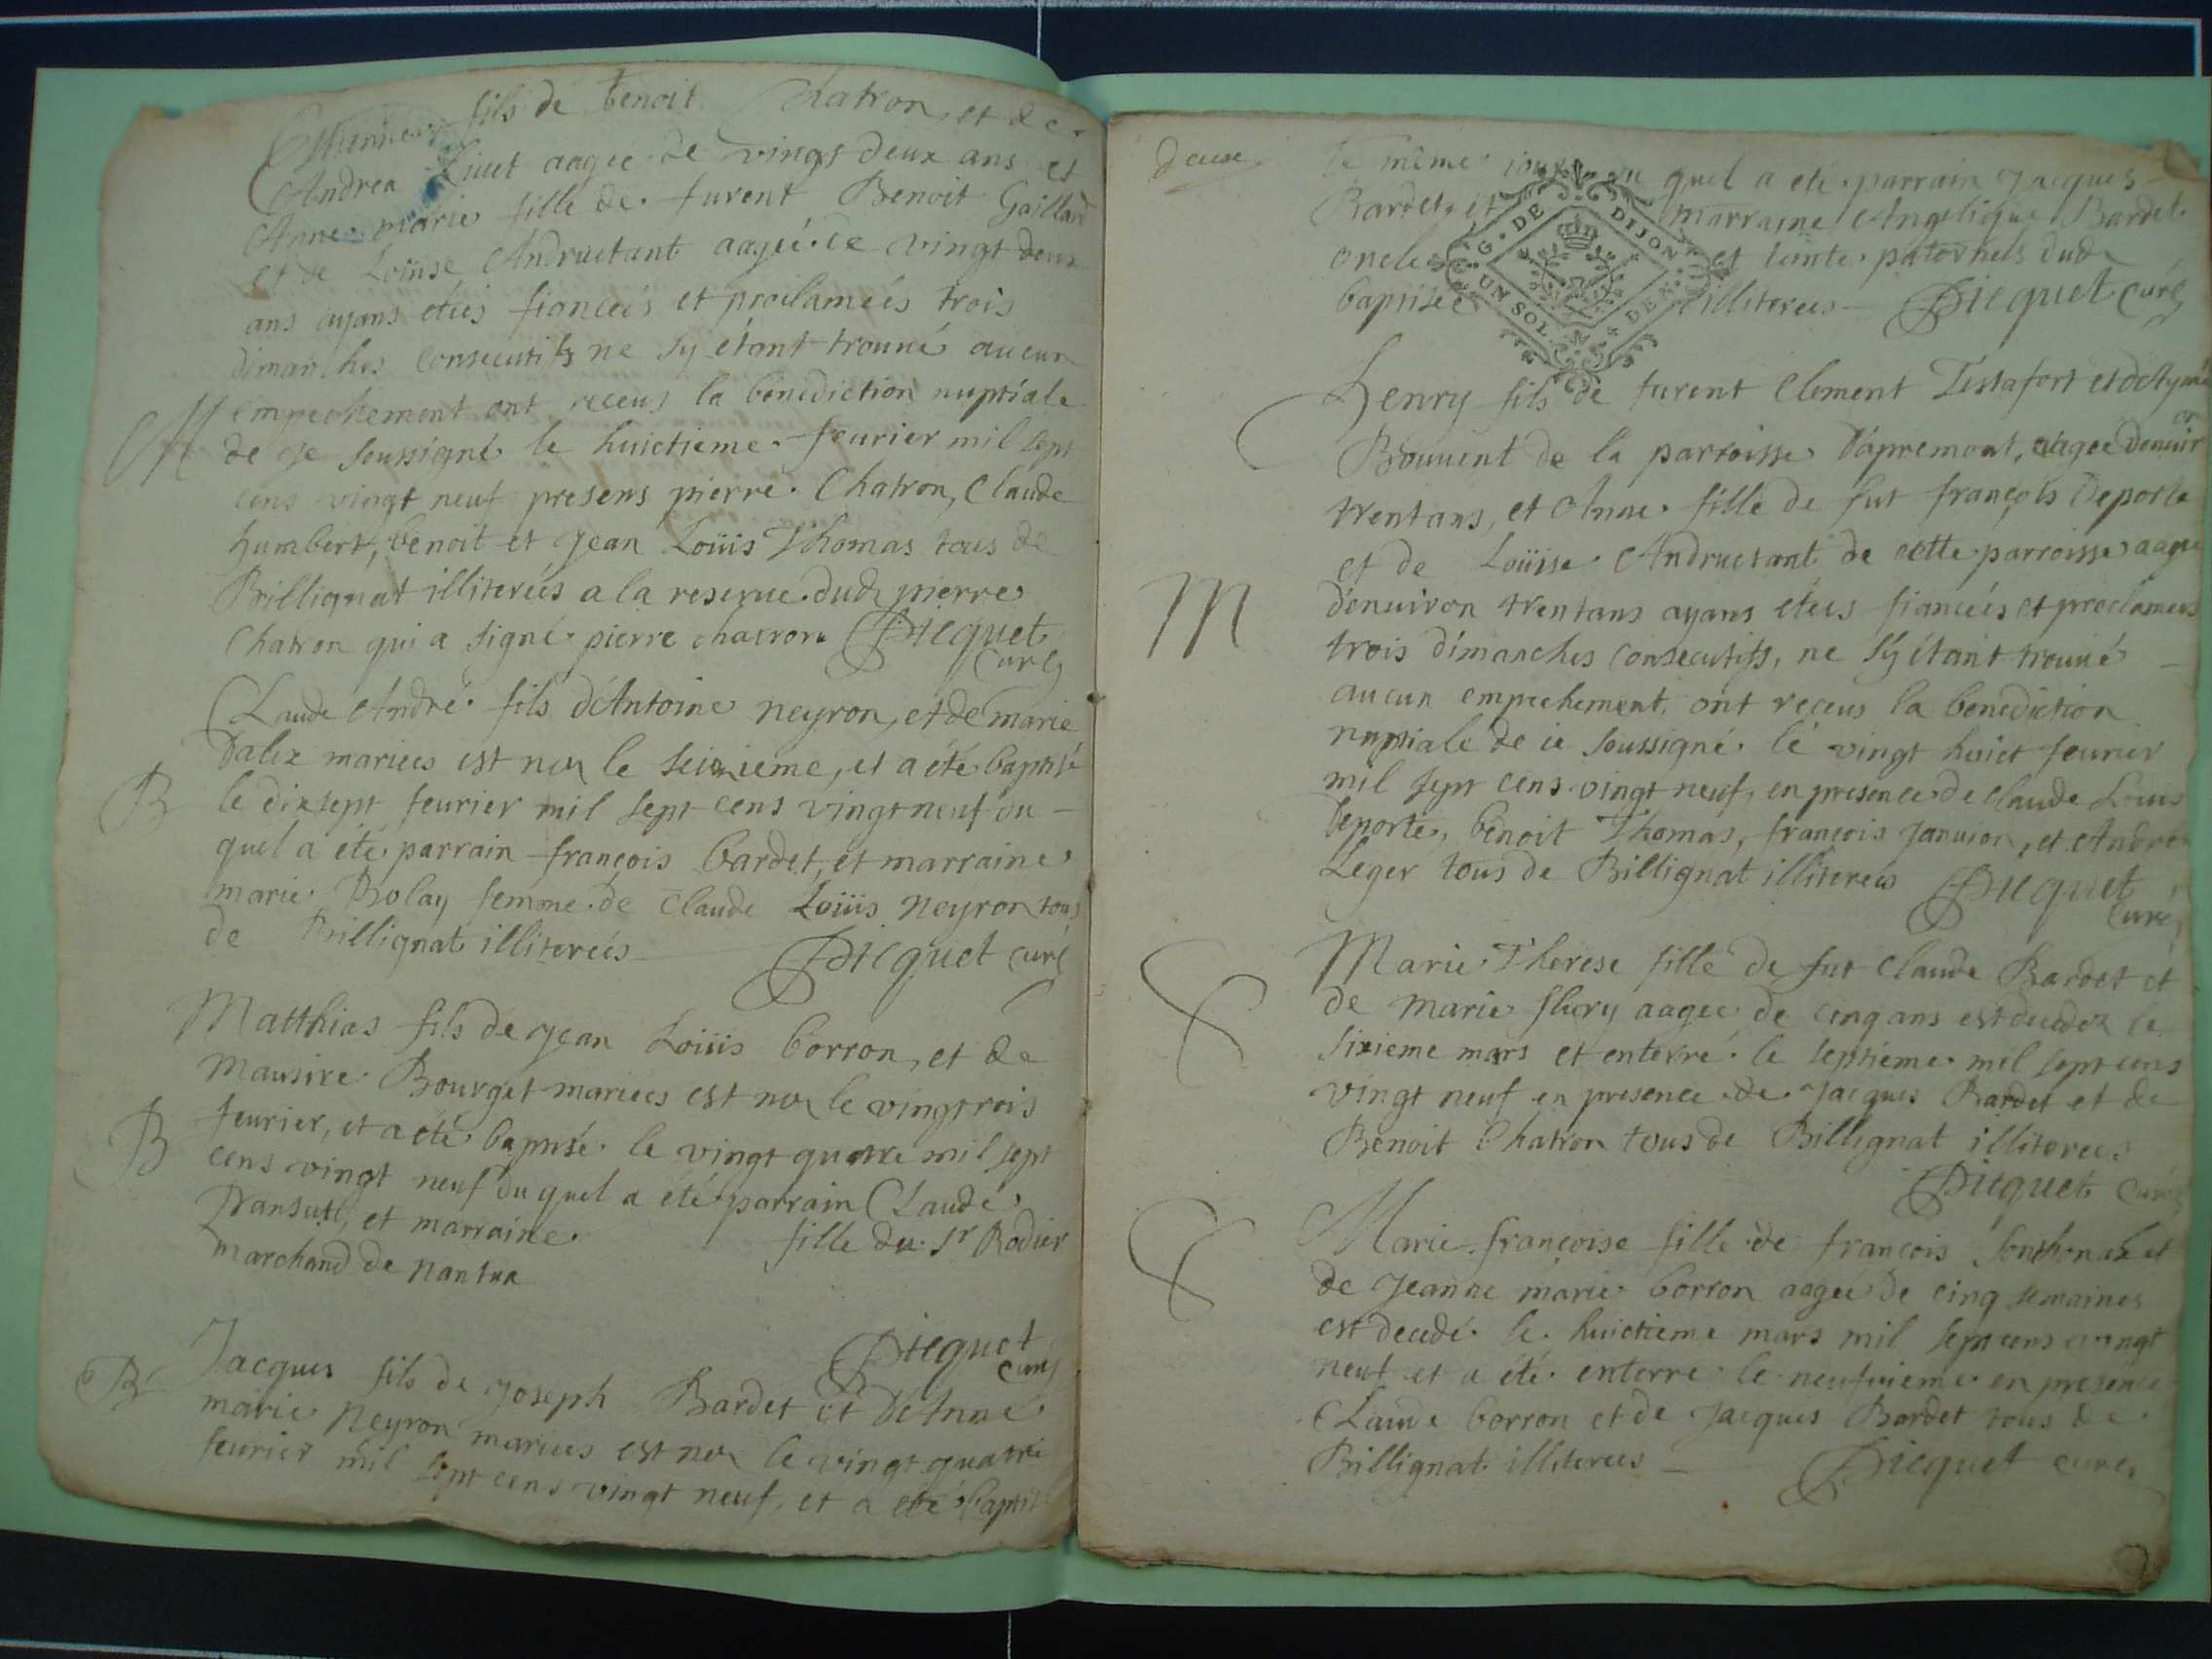 fils de benoit Chatron, et de
Andrea Liuet aagée de vingt deux ans et
Anne marie fille de furent Benoit Gaillard
et de Loüise Andruetant aagée de vingt deux
ans ayans etées fiancées et proclamées trois
dimanches consecutifs ne sy étant trouué aucun
M
empechement ont receus la benediction nuptiale
de je soussigné le huictieme feurier mil sept
cens vingt neuf presens pierre Chatron, Claude
humbert, benoit et Jean Loüis Thomas tous de
Billignat illiterées a la reserue dud pierre
Chatron qui a signé pierre chatron Dicquet
curé
Claude André fils d'Antoine neyron, et de marie
Dalex mariees est nez le seizieme, et a été baptisé
B
le dixsept feurier mil sept cens vingt neuf du
quel a été parrain françois bardet, et marraine
marie Rolay femme de Claude Loüis neyron tous
de Billignat illiterées Dicquet curé
Matthias fils de Jean Loüis borron, et de
Mausire Bourget mariees est nez le vingtrois
B
feurier, et a été baptisé le vingt quatre mil sept
cens vingt neuf du quel a été parrain Claude
Pansut, et marraine fille du Sr Rodier
marchand de nantua
Dicquet
curé
B
Jacques fils de Joseph Bardet et de Anne
marie neyron mariees est nez le vingt quatre
feurier mil sept cens vingt neuf, et a été baptisé
deuse
le même jour du quel a été parrain Jacques
Bardet, et marraine Angelique Bardet
oncle et tante paternels dud
baptisée illiterees Dicquet curé
G. DE DIJON
UN SOL 4 DEN.
Henry fils de furent Clement Testafort et de Aymé
Bouuent de la parroisse d'apremont, aagée d'enuiron
trentans, et Anne fille de fut françois Deporte
et de Loüise Andruetant de cette parroisse aagée
M
d'enuiron trentans ayans etées fiancées et proclamees
trois dimanches consecutifs, ne s'y étant trouué
aucun empechement, ont receus la benediction
nuptiale de je soussigné le vingt huict feurier
mil sept cens vingt neuf, en presence de Claude Louis
Deporte, benoit Thomas, françois Januion, et André
Leger tous de Billignat illiterées Dicquet
curé
Marie Therese fille de fut Claude Bardet et
de marie flury aagee de cinq ans est decedez le
sixieme mars et enterré le septieme mil sept cens
vingt neuf en presence de Jacques Bardet et de
Benoit Chatron tous de Billignat illiterees
Dicquet curé
Marie françoise fille de françois Sonthonax et
de Jeanne marie borron aagée de cinq semaines
est decedé le huictieme mars mil sept cens vingt
neuf et a été enterré le neufuieme en presence
Claude borron et de Jacques Bardet tous de
Billignat illiterees Dicquet curé